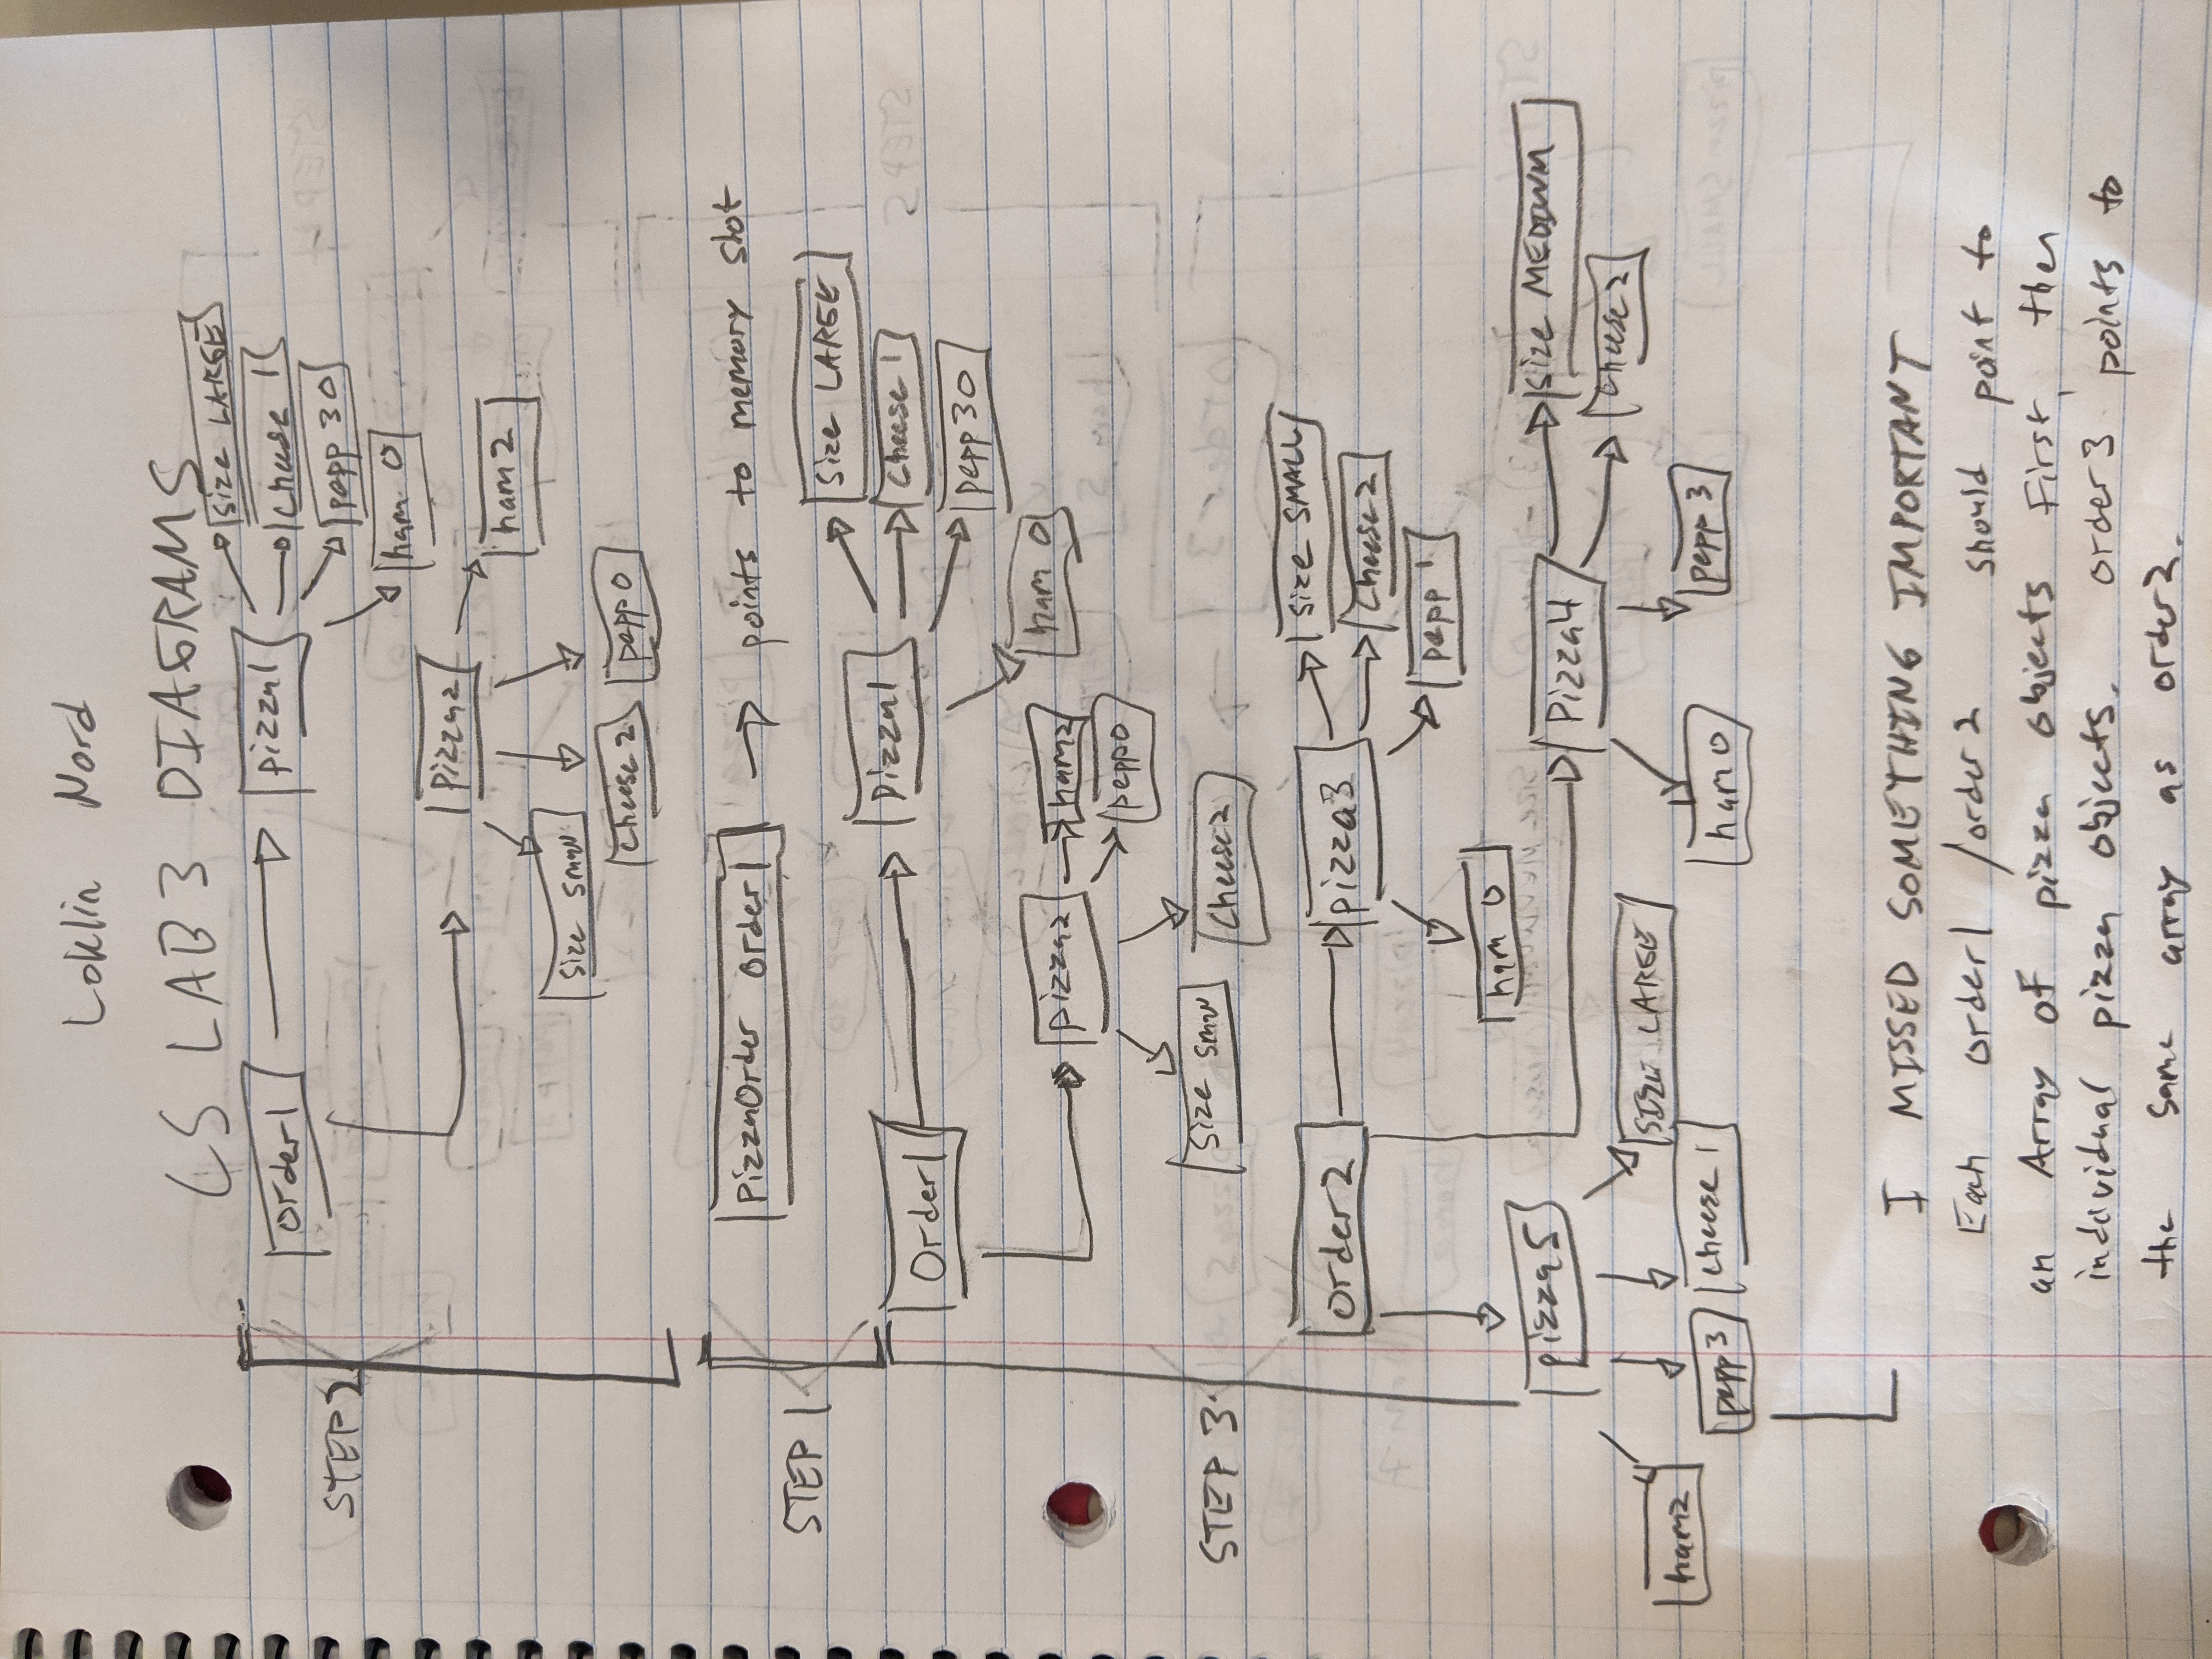 Loklin Nord
CS LAB 3 DIAGRAMS
STEP 2
order1
pizza1
size LARGE
cheese 1
pepp 30
ham 0
pizza2
ham 2
size small
cheese 2
pepp 0
STEP 1
PizzaOrder order1
points to memory slot
STEP 3
Order1
Pizza1
size LARGE
cheese 1
pepp 30
ham 0
pizza2
ham2
pepp0
size small
cheese2
order2
pizza3
size SMALL
cheese2
pepp 1
ham 0
pizza5
ham2
pepp 3
cheese 1
SIZE LARGE
Pizza4
size MEDIUM
cheese2
ham0
pepp 3
I MISSED SOMETHING IMPORTANT
Each order1 /order2 should point to
an Array of pizza objects First, then
individual pizza objects. order3 points to
the same array as order2.